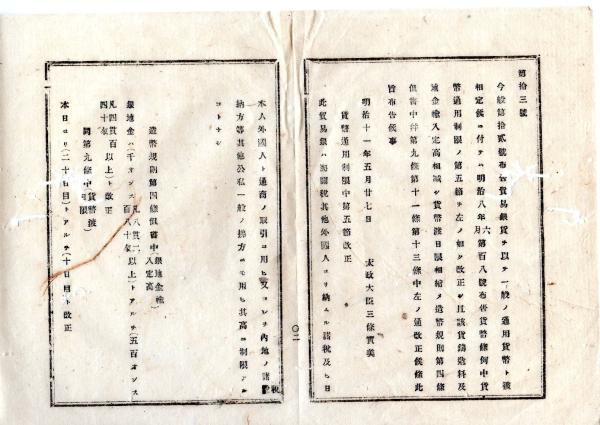 第拾三號
今般第拾貳號布告貿易銀貨ヲ以テ一般ノ通用貨幣ト被
相定候ニ付テハ明治八年六月第百八號布告貨幣條例中貨
幣通用制限ノ第五節ヲ左ノ如ク改正シ且該貨鑄造料及
地金輸入定高相減シ貨幣渡日限相縮メ造幣規則第四條
但書中幷第九條第十一條第十三條中左ノ通改正候條此
旨布告候事
明治十一年五月廿七日 太政大臣三條實美
貨幣通用制限中第五節改正
此貿易銀ハ海關稅其他外國人ヨリ納ムル諸稅及ヒ日
〇二
本人外國人ト通商ノ取引ニ用ヒ又コレヲ內地ノ諸稅
納方等其他公私一般ノ拂方ニモ用ヒ其高ニ制限アル
コトナシ
造幣規則第四條但書中銀地金輸入定高
銀地金ハ(千オンス凡八貫二百八十匁以上)トアルヲ(五百オンス
凡四貫百四十匁以上)ト改正
同第九條中貨幣渡日限
本日ヨリ(二十日目)トアルヲ(十日目)ト改正